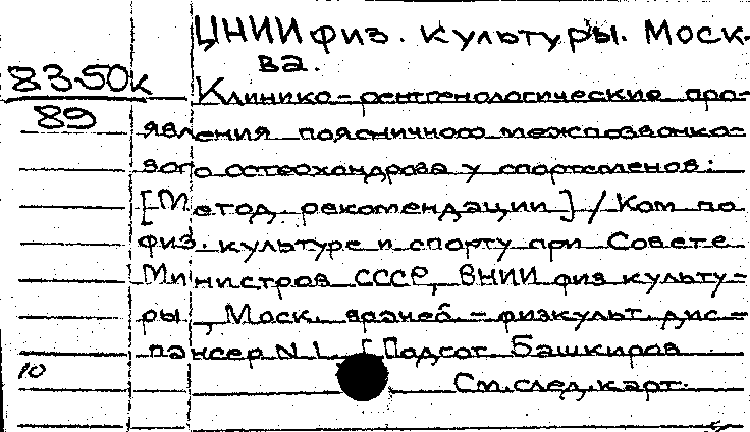 ЦНИИ физ. культуры. Моск-
ва.
83-50к
89
Клинико-рентгенологические про-
явления поясничного межпозвонко-
вого остеохондроза у спортсменов:
[Метод. рекомендации] / Ком по
физ. культуре и спорту при Совете
Министров СССР, ВНИИ физ культу-
ры, Моск. врачеб.-физкульт. дис-
пансер N 1. [Подгот. Башкиров
10
См. след. карт.